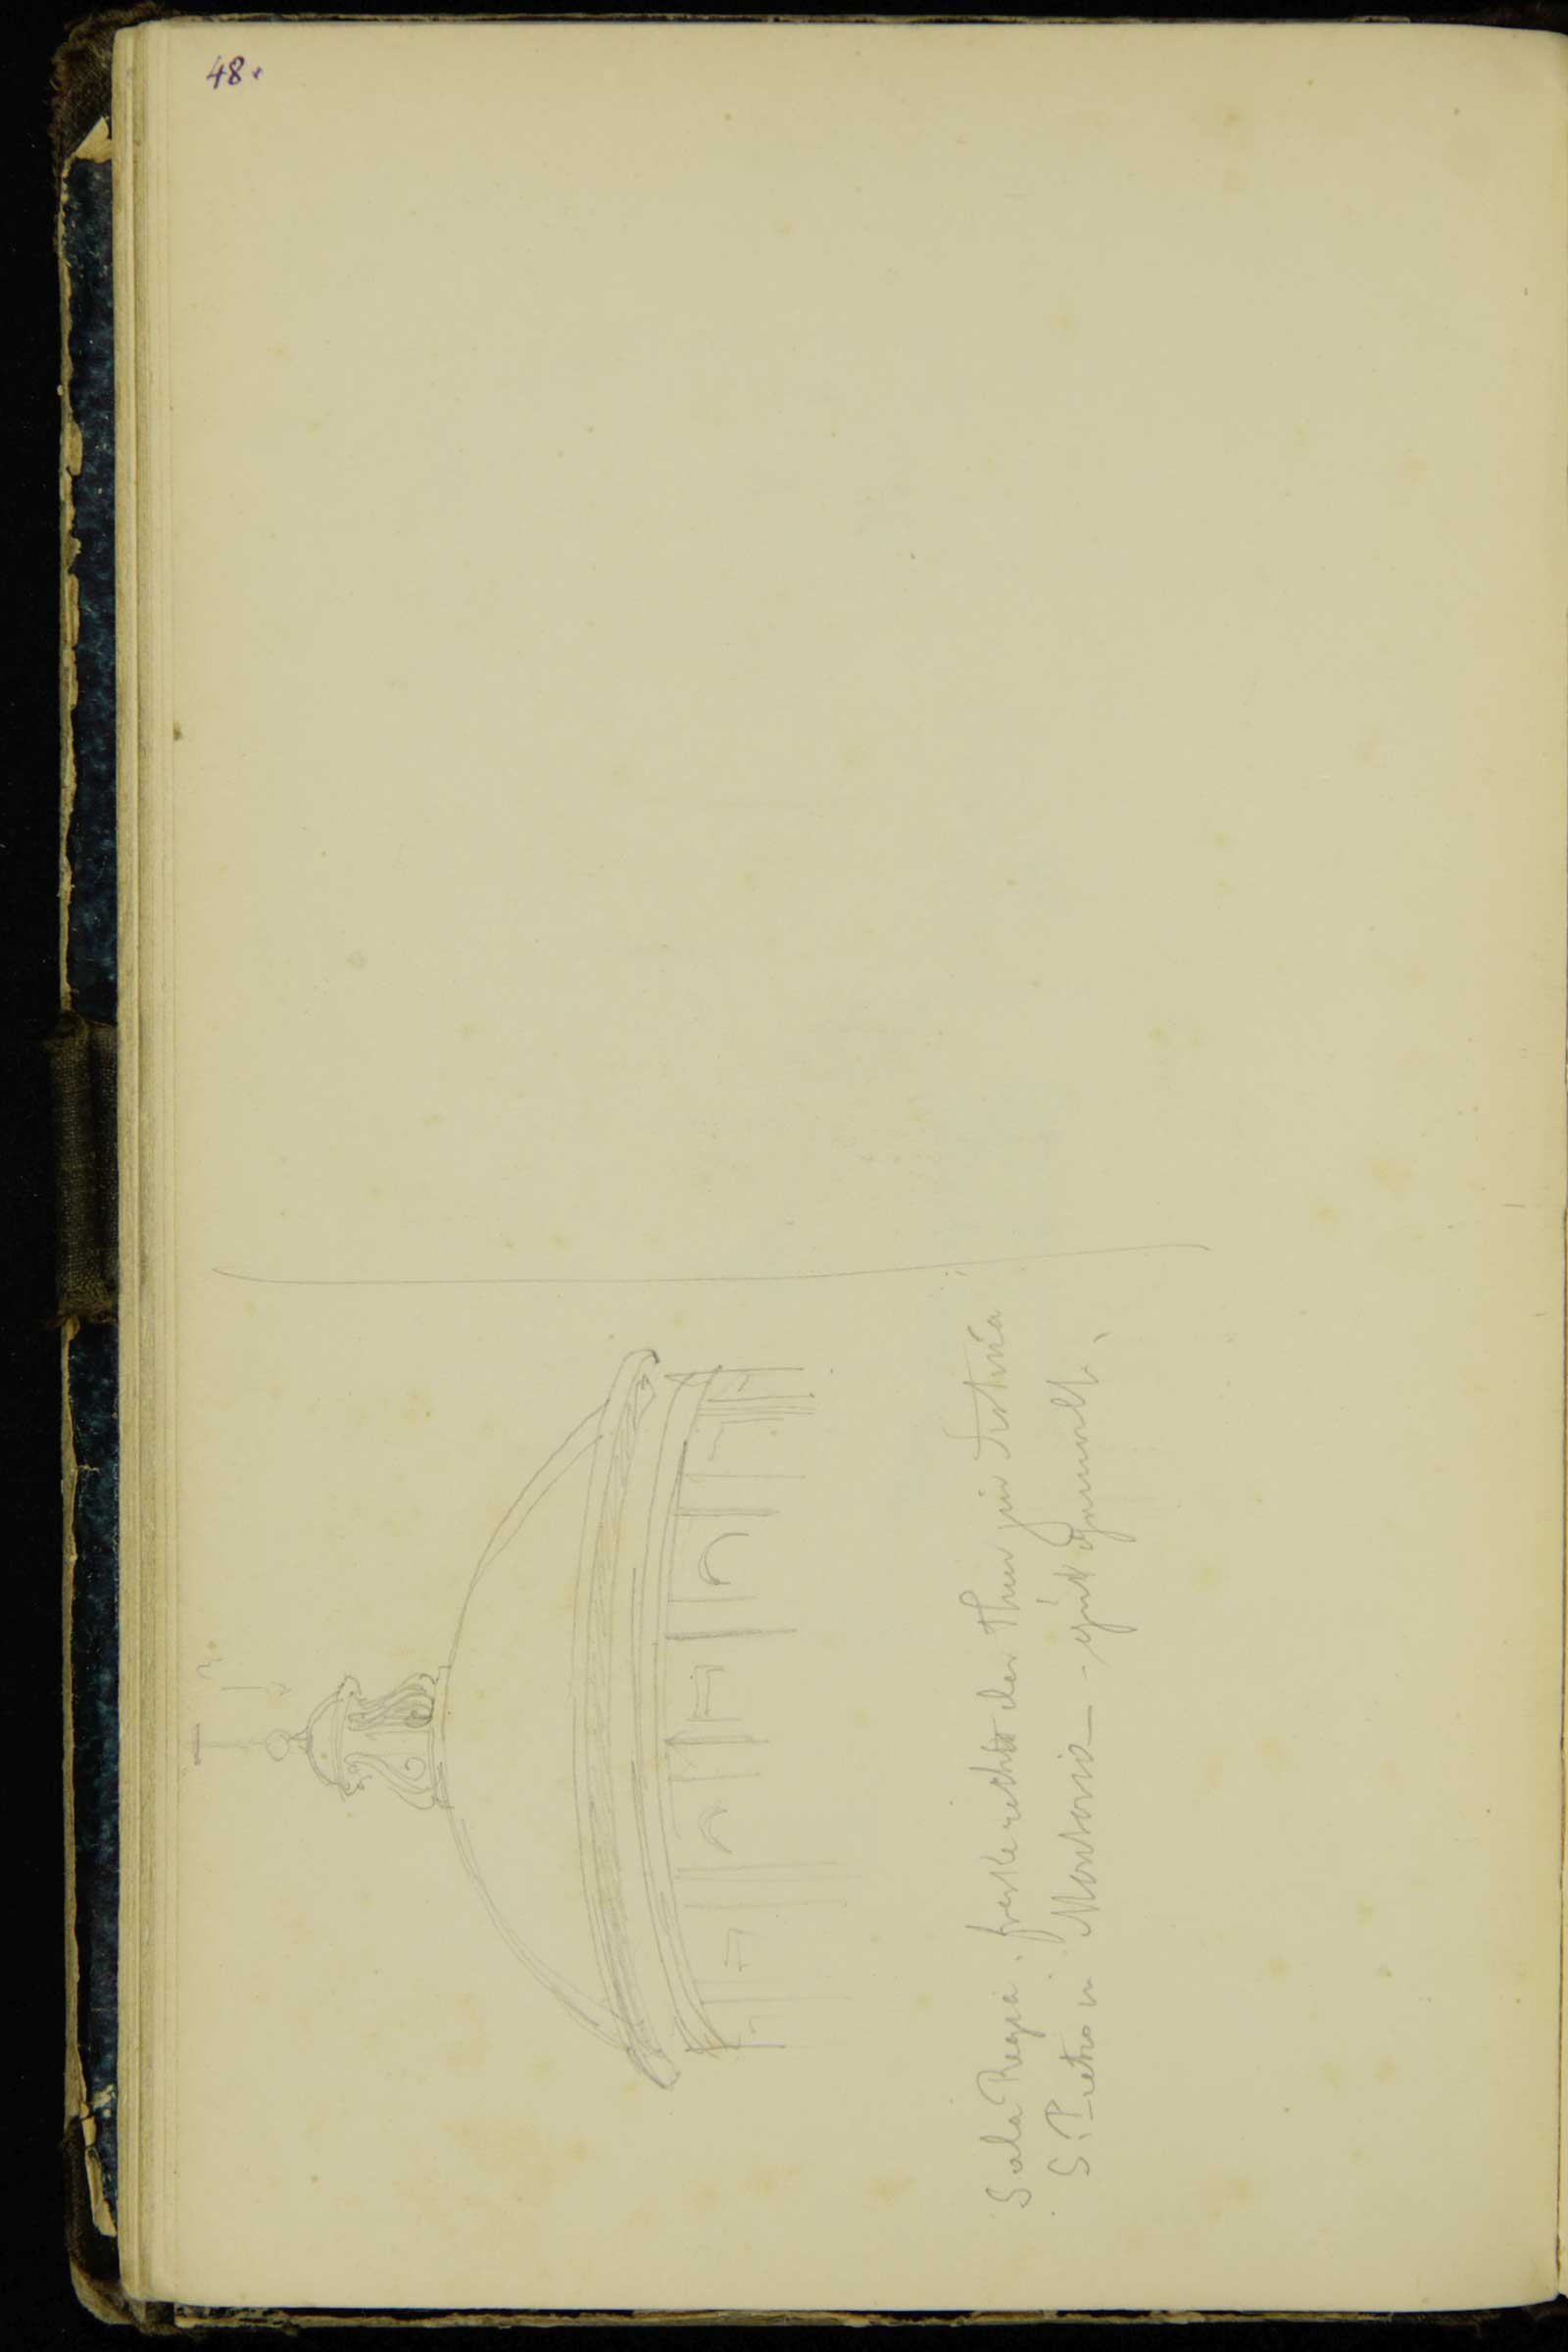 48.
Sala Regia. freske rechts der Thür zur Sistina
S. Pietro in Montorio — gut gemalt.